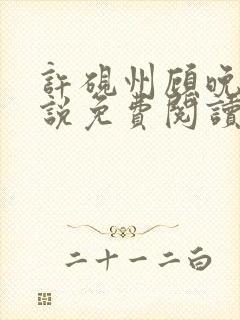 許硯州顾晚
說免費閱讀
二十一二白